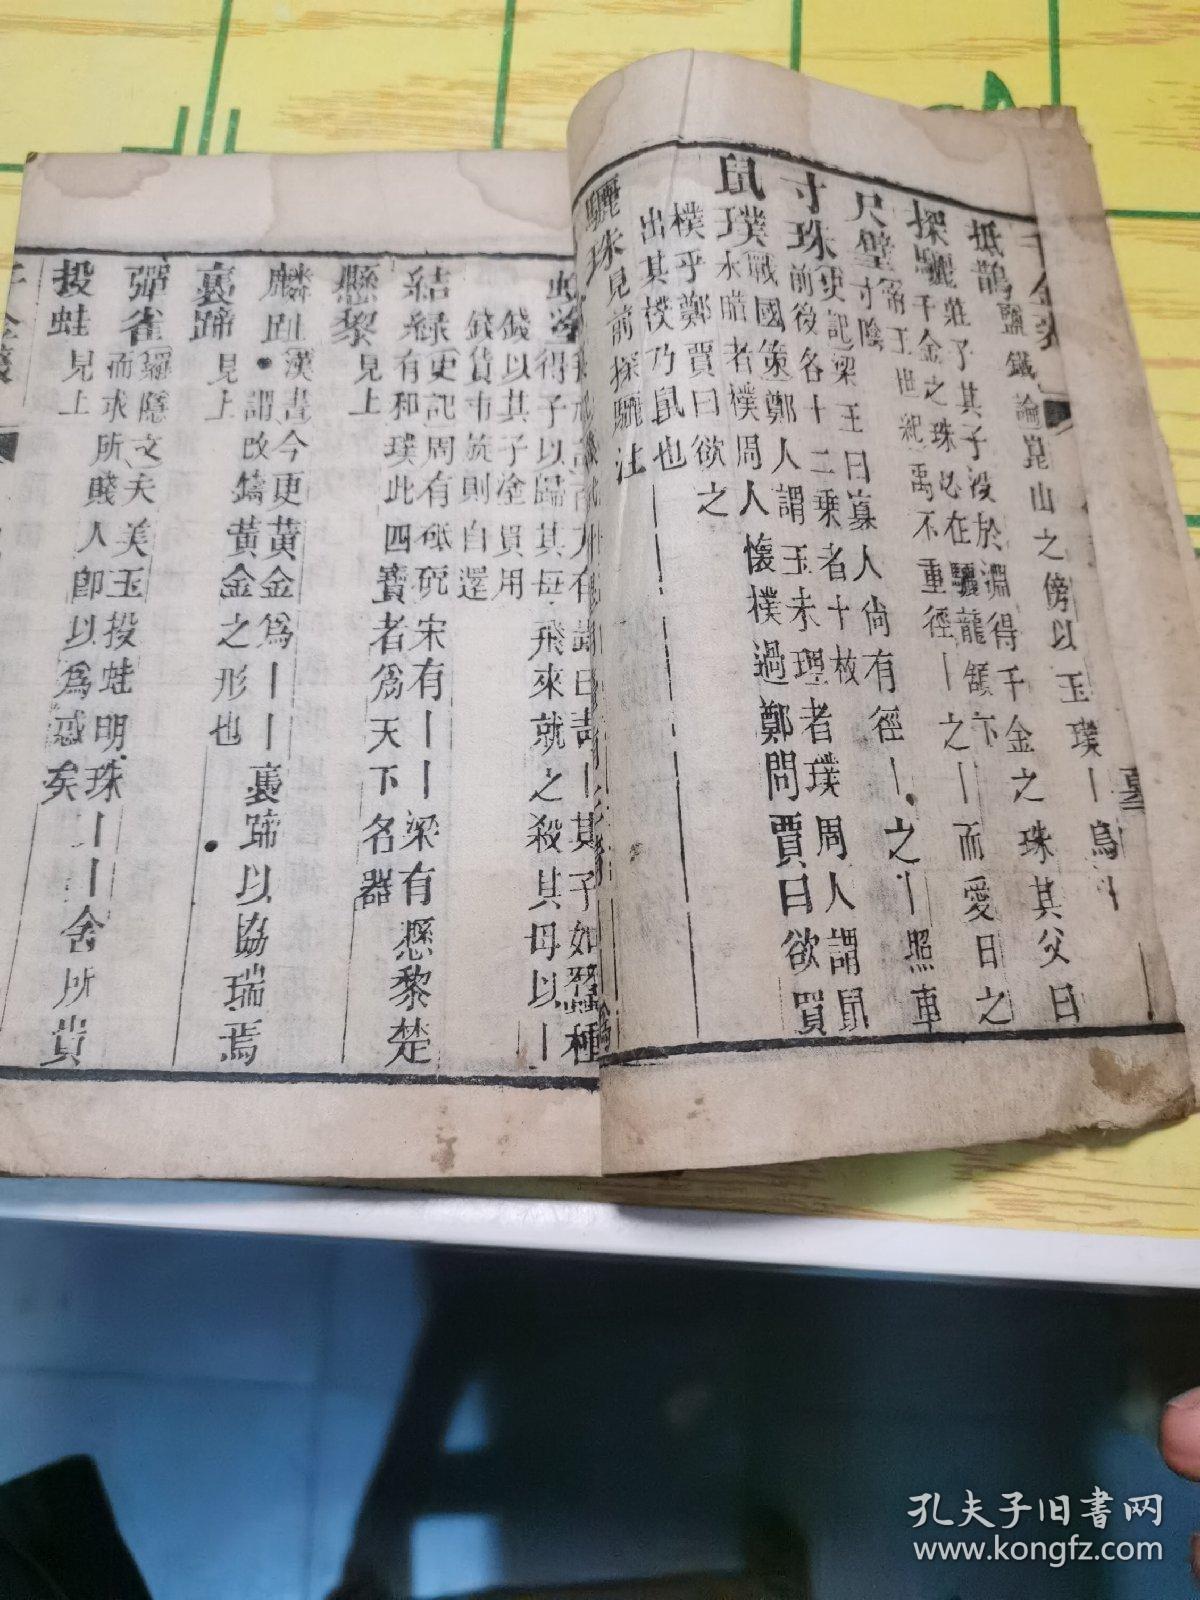 抵鵲鹽鐵論崑山之傍以玉璞丨烏丨
探驪莊子其子沒於淵得千金之珠其父曰
千金之珠必在驪龍頷下
尺璧帝王世紀禹不重徑丨之丨而愛日之
寸陰
寸珠史記梁王曰寡人尚有徑丨之丨照車
前後各十二乗者十枚
鼠璞戰國策鄭人謂玉未理者璞周人謂鼠
未腊者樸周人懷樸過鄭問賈曰欲買
樸乎鄭賈曰欲之
出其樸乃鼠也
驪珠見前探驪注
得子以歸其母飛來就之殺其母以丨
錢以其子塗貫用
錢貨市旋則自還
結綠史記周有砥砨宋有丨丨梁有懸黎楚
有和璞此四寶者爲天下名器
懸黎見上
麟趾漢書今更黃金爲丨丨裹蹄以協瑞焉
謂改鑄黃金之形也
裹蹄見上
彈雀
而求所賤人卽以爲惑矣
美玉投蛙明珠丨丨舍所貴
投蛙見上
孔夫子旧书网
www.kongfz.com